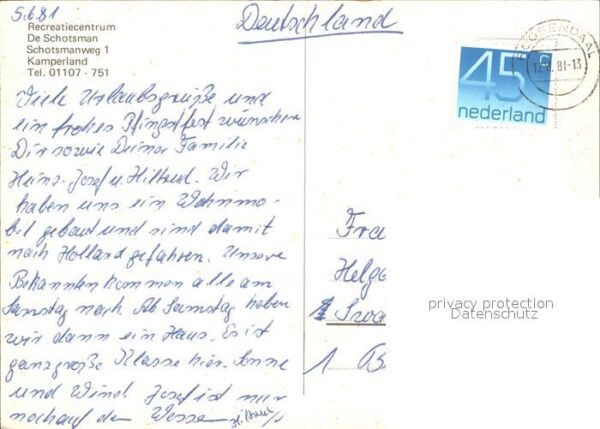 5.6.81
Deutschland
Recreatiecentrum
De Schotsman
Schotsmanweg 1
Kamperland
Tel. 01107 - 751
ROOSENDAAL
81-13
45 c
nederland
Viele Urlaubsgrüße und
ein frohes Pfingstfest wünschen
Dir sowie Deiner Familie
Heinz-Josef u. Hiltrud. Wir
haben uns ein Wohnmo-
bil gebaut und sind damit
nach Holland gefahren. Unsere
Bekannten kommen alle am
Samstag nach. Ab Samstag haben
wir dann ein Haus. Es ist
ganz große Klasse hier. Sonne
und Wind. Josef ist nur
noch auf dem Wasser
Fra
Helga
1
privacy protection
Datenschutz